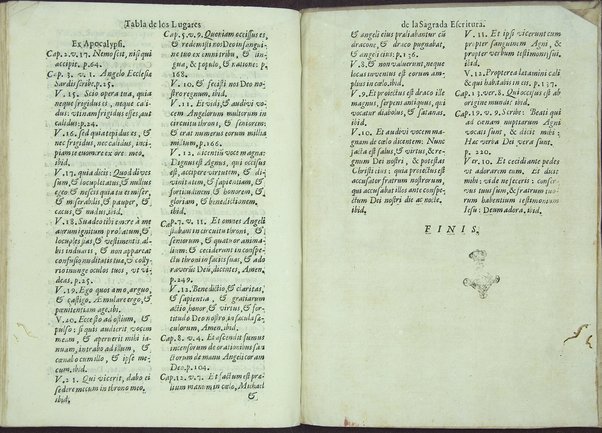 Tabla de los Lugares
Ex Apocalypsi.
Cap. 2. v. 17. Nemo scit, nisi qui
accipit. p. 64.
Cap. 3. v. 1. Angelo Ecclesiæ
Sardis scribe. p. 25.
V. 15. Scio opera tua, quia
neque frigidus es, neque cali
dus: vtinam frigidus esses, aut
calidus: p. 24.
V. 16. sed quia tepidus es, &
nec frigidus, nec calidus, inci
piam te euomere ex ore meo.
ibid.
V. 17. quia dicis: Quod diues
sum, & locupletatus, & nullius
egeo: & nescis quia tu es miser,
& miserabilis, & pauper, &
cæcus, & nudus, ibid.
V. 18. Suadeo tibi emere à me
aurum ignitum probatum, &
locuples fias, & vestimentis al-
bis induaris, & non appareat
confusio nuditatis tuæ, & colly-
rio inunge oculos tuos, vt vi-
deas. p. 25.
V. 19. Ego quos amo, arguo,
& castigo. Æmulare ergo, &
pœnitentiam age. ibi.
V. 20. Ecce sto ad ostium, &
pulso: si quis audierit vocem
meam, & aperuerit mihi ia-
nuam, intrabo ad illum, &
cœnabo cum illo, & ipse me-
cum. ibid.
V. 21. Qui vicerit, dabo ei
sedere mecum in throno meo.
ibid.
Cap. 5. v. 9. Quoniam occisus es,
& redemisti nos Deo in sangui-
ne tuo ex omni tribu, & lin-
gua, & populo, & natione: p.
168.
V. 10. & fecisti nos Deo no-
stro regnum, ibid.
V. 11. Et vidi, & audiui vo-
cem Angelorum multorum in
circuitu throni, & seniorum:
& erat numerus eorum millia
millium, p. 166.
V. 12. dicentiũ voce magna:
Dignus est Agnus, qui occisus
est, accipere virtutem, & di-
uinitatem, & sapientiam, &
fortitudinem, & honorem, &
gloriam, & benedictionem,
ibid.
Cap. 7. v. 11. Et omnes Angeli
stabant in circuitu throni, &
seniorum, & quatuor anima-
lium: & ceciderunt in conspe-
ctu throni in facies suas, & ado
rauerũt Deũ, dicentes, Amen.
p. 249.
V. 12. Benedictio, & claritas,
& sapientia, & gratiarum
actio, honor, & virtus, & for-
titudo Deo nostro, in sæcula sæ-
culorum, Amen. ibid.
Cap. 8. v. 4. Et ascendit fumus
incensorum de orationibus san
ctorum de manu Angeli coram
Deo. p. 104.
Cap. 12. v. 7. Et factum est præ-
lium magnum in cælo, Michael
&
de la Sagrada Escritura.
& angeli eius præliabantur cũ
dracone, & draco pugnabat,
& angeli eius; p. 136.
V. 8. & non valuerunt, neque
locus inuentus est eorum am-
plius in cælo. ibid.
V. 9. Et proiectus est draco ille
magnus, serpens antiquus, qui
vocatur diabolus, & satanas.
ibid.
V. 10. Et audiui vocem mag-
nam de cælo dicentem: Nunc
facta est salus, & virtus, & re-
gnum Dei nostri, & potestas
Christi eius: quia proiectus est
accusator fratrum nostrorum,
qui accusabat illos ante conspe-
ctum Dei nostri die ac nocte.
ibid.
V. 11. Et ipsi vicerunt eum
propter sanguinem Agni, &
propter verbum testimonij sui,
ibid.
V. 12. Propterea lætamini cæli
& qui habitatis in eis. p. 137.
Cap. 13. ver. 8. Qui occisus est ab
origine mundi: ibid.
Cap. 19. v. 9. Scribe: Beati qui
ad cœnam nuptiarum Agni
vocati sunt, & dicit mihi:
Hæc verba Dei vera sunt.
p. 220.
Ver. 10. Et cecidi ante pedes
vt adorarem eum. Et dicit
mihi: vide ne feceris: conser-
uus tuus sum, & fratrum tuo-
rum habentium testimonium
Iesu: Deum adora, ibid.
FINIS.